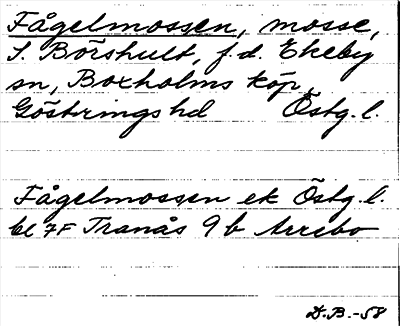 Fågelmossen, mosse,
S. Börshult, f.d. Ekeby
sn, Boxholms köp,
Göstrings hd Östg. l.
Fågelmossen ek Östg. l.
bl 7F Tranås 9 b Arrebo
D.B.-58